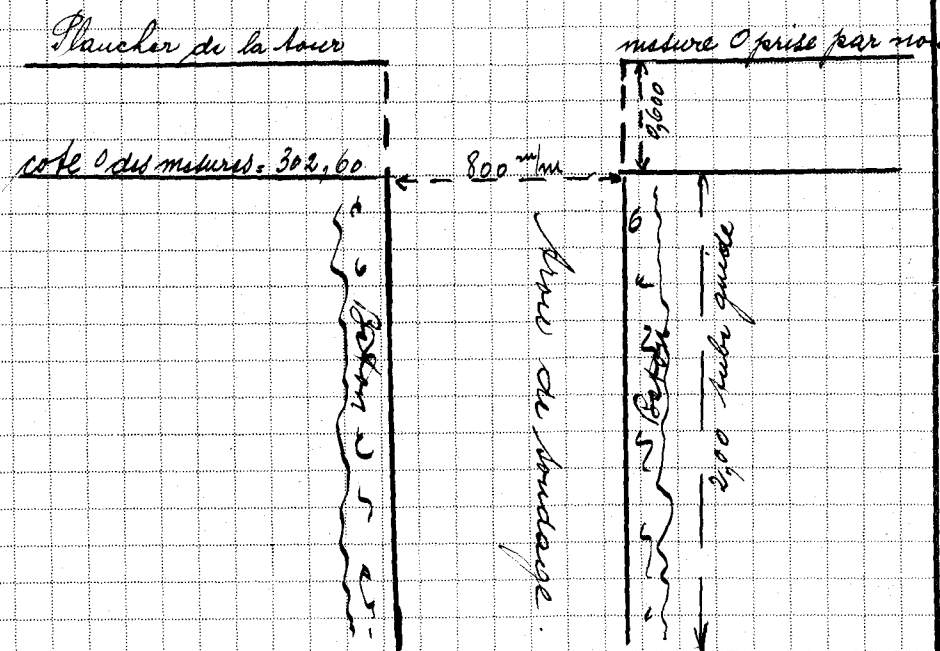 Plancher de la tour
mesure 0 prise par no
0,600
cote 0 des mesures = 302,60
800 m/m
Béton
trou de sondage.
Béton
2,00 tube guide